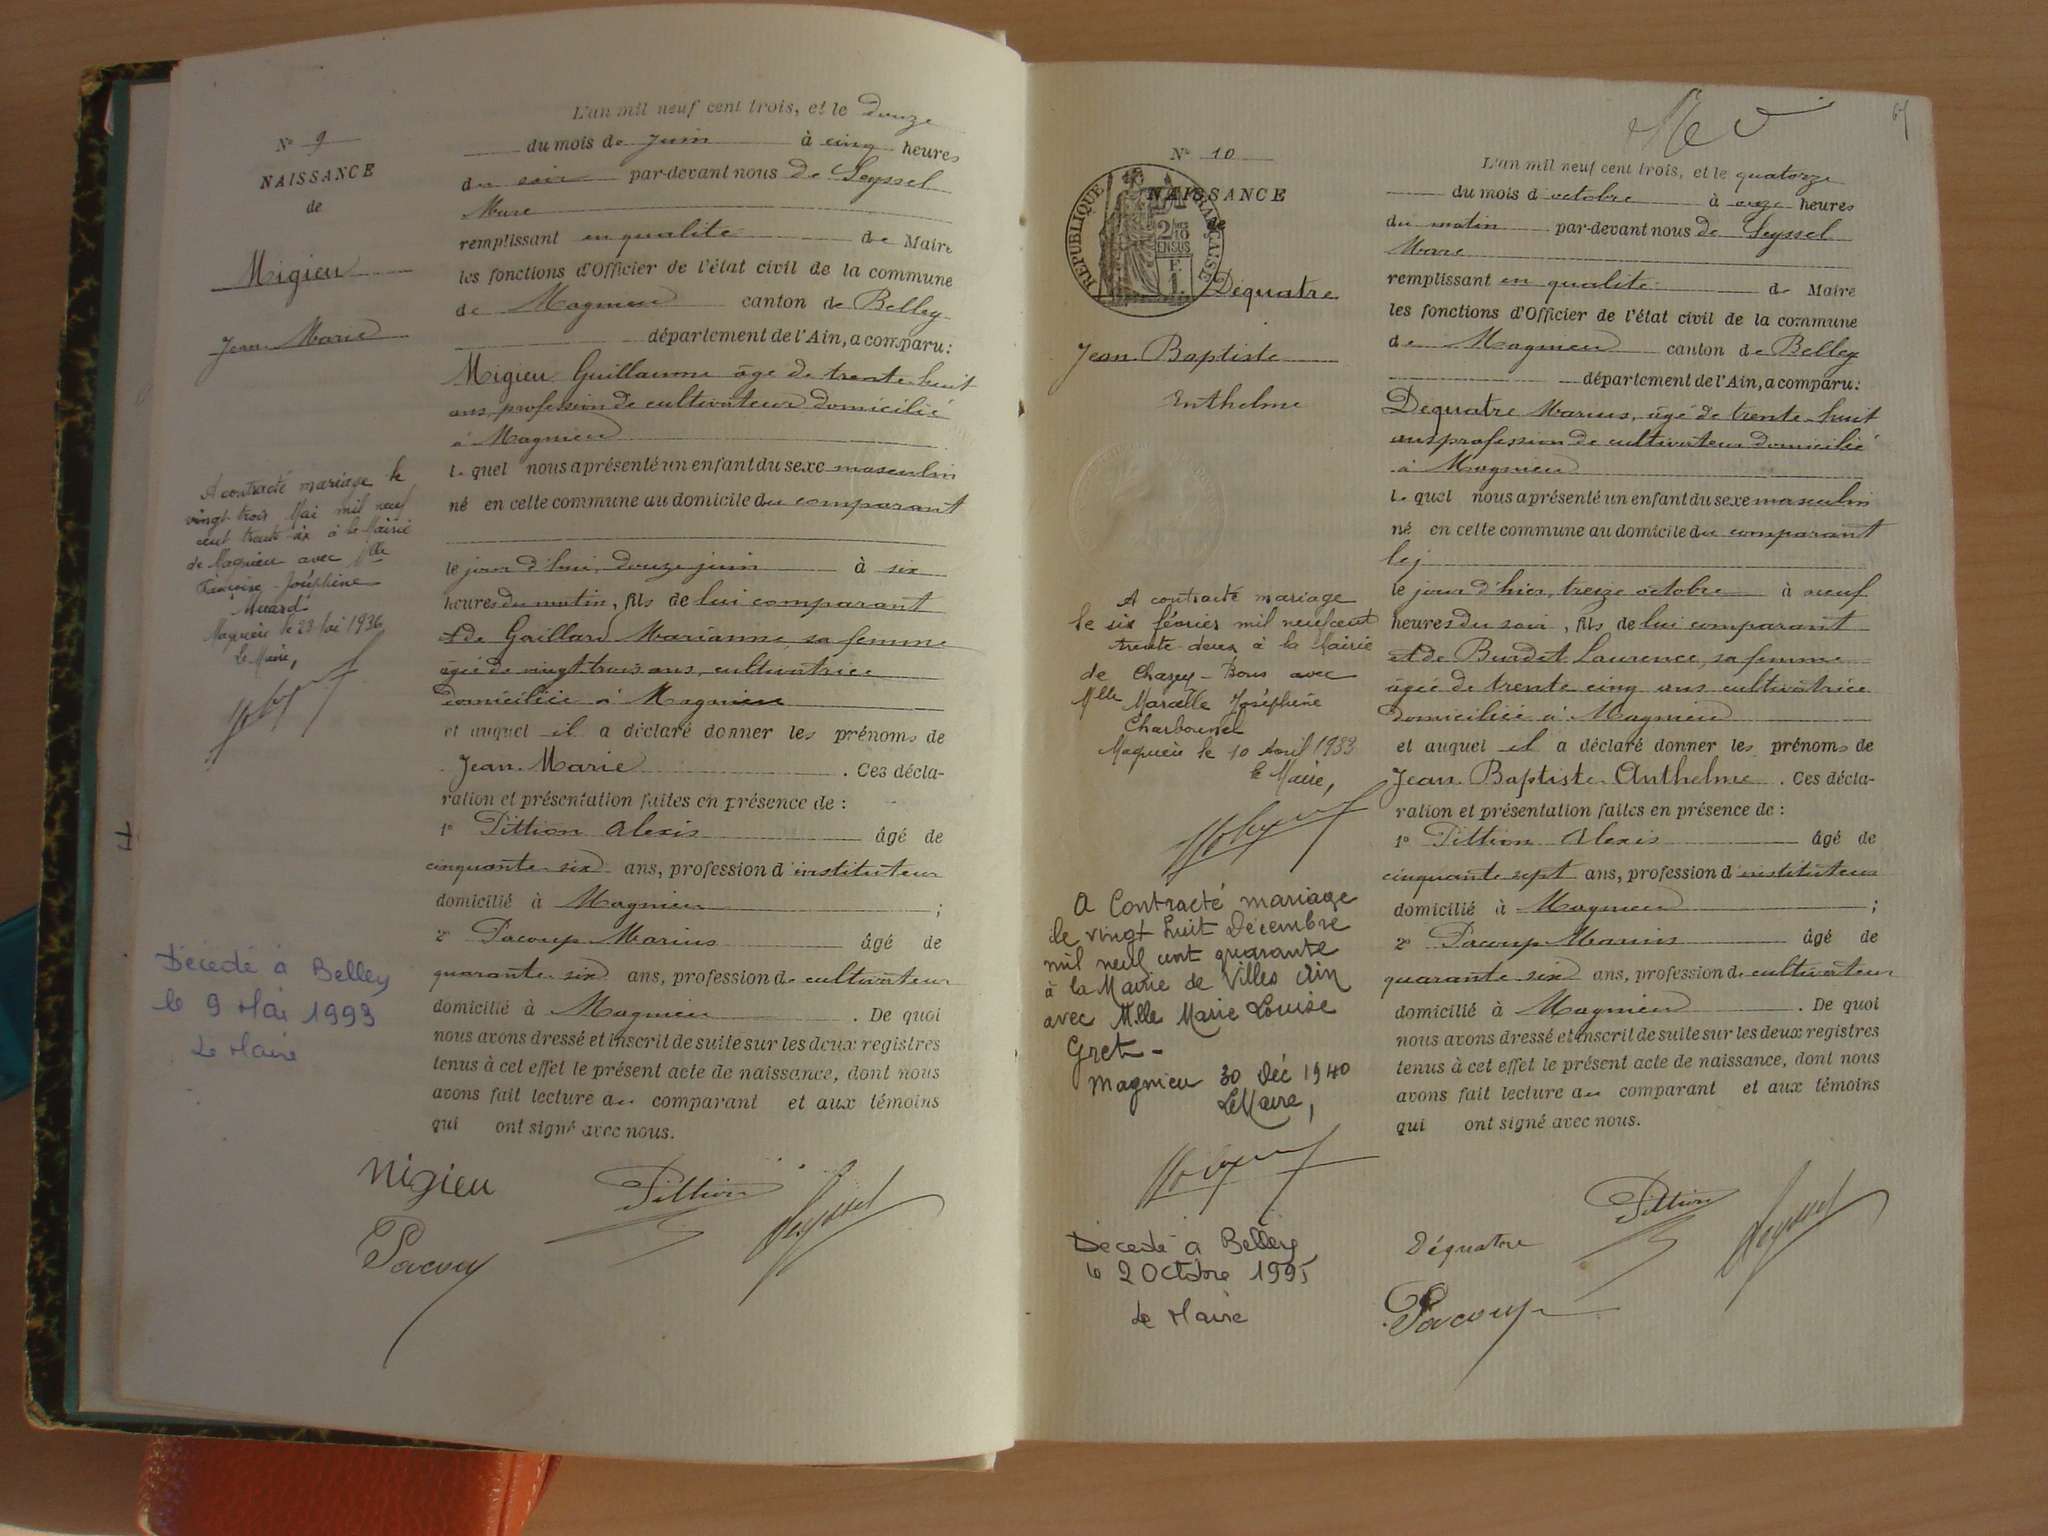 L'an mil neuf cent trois, et le douze
du mois de Juin à cinq heures
du soir par-devant nous De Seyssel
Marc
remplissant en qualité de Maire
les fonctions d'Officier de l'état civil de la commune
de Magnieu canton de Belley
département de l'Ain, a comparu:
Migieu Guillaume âgé de trente-huit
ans, profession de cultivateur domicilié
à Magnieu
lequel nous a présenté un enfant du sexe masculin
né en cette commune au domicile du comparant
le jour d'hui, douze juin à six
heures du matin, fils de lui comparant
et de Gaillard Marianne, sa femme
âgée de vingt trois ans, cultivatrice
domiciliée à Magnieu
et auquel il a déclaré donner les prénoms de
Jean Marie. Ces décla-
ration et présentation faites en présence de:
1° Pittion Alexis âgé de
cinquante six ans, profession d'instituteur
domicilié à Magnieu;
2° Pacoup Marius âgé de
quarante six ans, profession de cultivateur
domicilié à Magnieu. De quoi
nous avons dressé et inscrit de suite sur les deux registres
tenus à cet effet le présent acte de naissance, dont nous
avons fait lecture au comparant et aux témoins
qui ont signé avec nous.
Migieu Pittion
Pacoup
N° 9
NAISSANCE
de
Migieu
Jean Marie
A contracté mariage le
vingt trois Mai mil neuf
cent trente six à la Mairie
de Magnieu avec Mlle
Joséphine
Magnieu le 23 Mai 1936
Le Maire,
Décédé à Belley
le 9 Mai 1993
Le Maire
67
N° 10
NAISSANCE
de
RÉPUBLIQUE FRANÇAISE
2/10 EN SUS
Dequatre
Jean Baptiste
Enthelme
A contracté mariage
le six février mil neuf cent
trente-deux à la Mairie
de Chazey-Bons avec
Mlle Marcelle Joséphine
Charbonnel
Magnieu le 10 Avril 1933
Le Maire,
A Contracté mariage
le vingt huit Décembre
mil neuf cent quarante
à la Mairie de Villes Ain
avec Mlle Marie Louise
Gret -
Magnieu 30 Déc 1940
Le Maire,
Décédé à Belley
le 2 Octobre 1995
Le Maire
L'an mil neuf cent trois, et le quatorze
du mois d'octobre à onze heures
du matin par-devant nous De Seyssel
Marc
remplissant en qualité de Maire
les fonctions d'Officier de l'état civil de la commune
de Magnieu canton de Belley
département de l'Ain, a comparu:
Dequatre Marius, âgé de trente-huit
ans profession de cultivateur domicilié
à Magnieu
lequel nous a présenté un enfant du sexe masculin
né en cette commune au domicile du comparant
le jour d'hier, treize octobre à neuf
heures du soir, fils de lui comparant
et de Burdet Laurence, sa femme
âgée de trente cinq ans cultivatrice
domiciliée à Magnieu
et auquel il a déclaré donner les prénoms de
Jean Baptiste Anthelme. Ces décla-
ration et présentation faites en présence de:
1° Pittion Alexis âgé de
cinquante sept ans, profession d'instituteur
domicilié à Magnieu;
2° Pacoup Marius âgé de
quarante six ans, profession de cultivateur
domicilié à Magnieu. De quoi
nous avons dressé et inscrit de suite sur les deux registres
tenus à cet effet le présent acte de naissance, dont nous
avons fait lecture au comparant et aux témoins
qui ont signé avec nous.
Déquatre Pittion
Pacoup